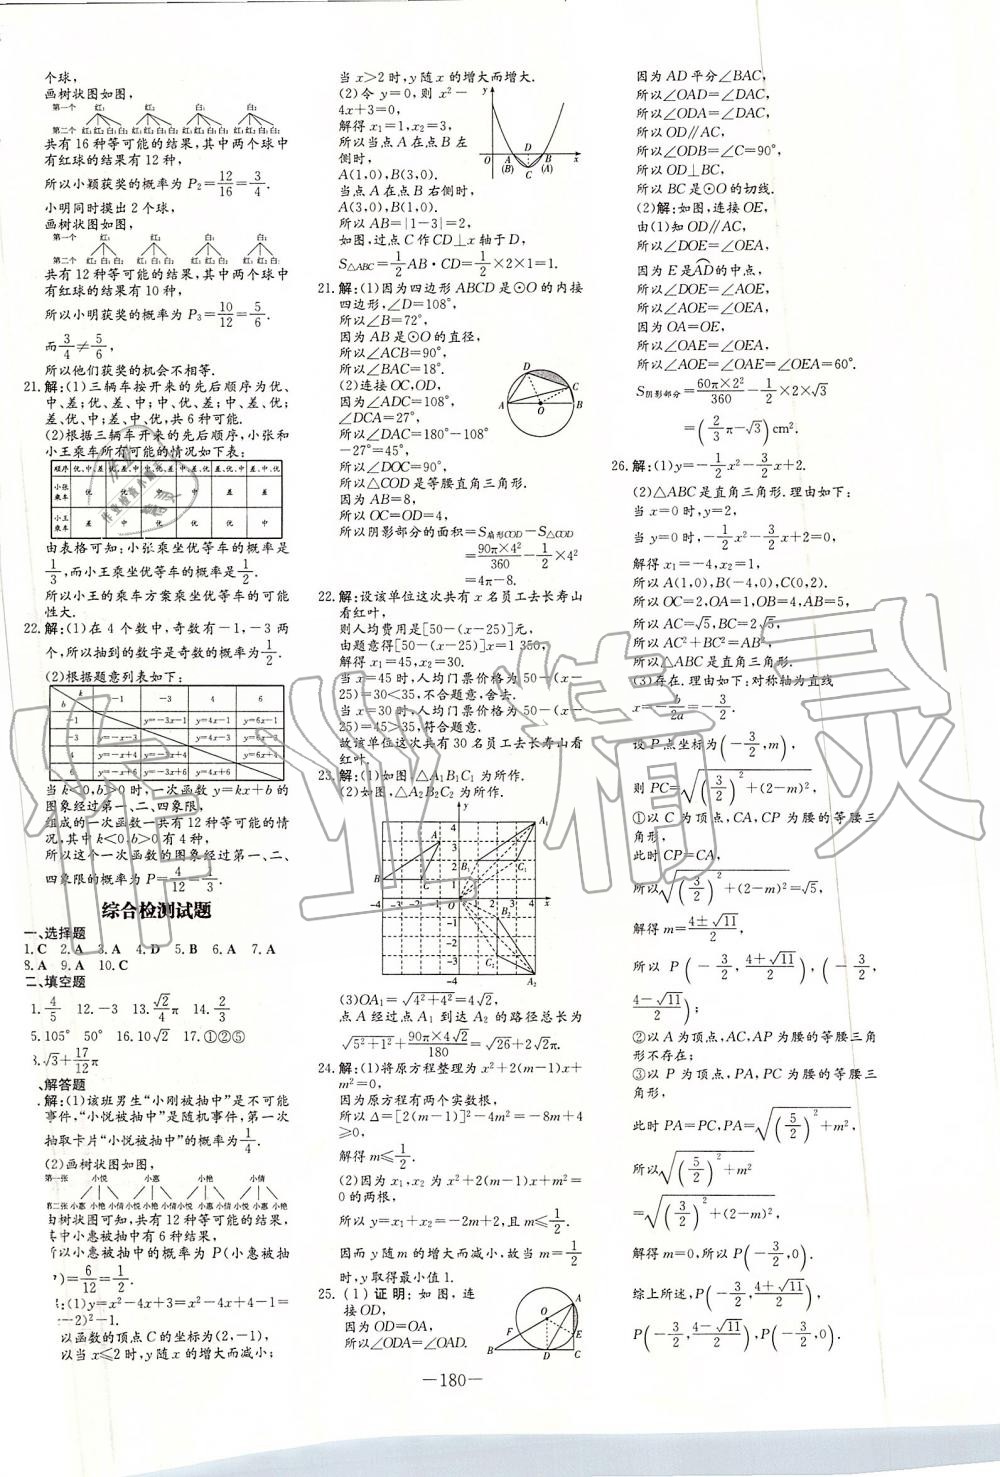 个球,
画树状图如图,
第一个 红₁ 红₂ 白₁ 白₂
第二个 红₁ 红₂ 白₁ 白₂ 红₁ 红₂ 白₁ 白₂ 红₁ 红₂ 白₁ 白₂ 红₁ 红₂ 白₁ 白₂
共有 16 种等可能的结果,其中两个球中
有红球的结果有 12 种,
所以小颖获奖的概率为 P₂=12/16=3/4.
小明同时摸出 2 个球,
画树状图如图,
第一个 红₁ 红₂ 白₁ 白₂
共有 12 种等可能的结果,其中两个球中
有红球的结果有 10 种,
所以小明获奖的概率为 P₃=10/12=5/6.
而3/4≠5/6,
所以他们获奖的机会不相等.
21.解:(1)三辆车按开来的先后顺序为优、
中、差;优、差、中;中、优、差;中、差、优;
差、优、中;差、中、优,共 6 种可能.
(2)根据三辆车开来的先后顺序,小张和
小王乘车所有可能的情况如下表:
顺序 优、中、差 优、差、中 中、优、差 中、差、优 差、优、中 差、中、优
小张乘车 优 优 中 中 差 差
小王乘车 差 中 优 优 优 中
由表格可知:小张乘坐优等车的概率是
1/3,而小王乘坐优等车的概率是1/2.
所以小王的乘车方案乘坐优等车的可能
性大.
22.解:(1)在 4 个数中,奇数有-1,-3 两
个,所以抽到的数字是奇数的概率是1/2.
(2)根据题意列表如下:
k b -1 -3 4 6
-1 y=-3x-1 y=4x-1 y=6x-1
-3 y=-x-3 y=4x-3 y=6x-3
4 y=-x+4 y=-3x+4 y=6x+4
6 y=-x+6 y=-3x+6 y=4x+6
当 k<0,b>0 时,一次函数 y=kx+b 的
图象经过第一、二、四象限,
组成的一次函数一共有 12 种等可能的情
况,其中 k<0,b>0 有 4 种,
所以这个一次函数的图象经过第一、二、
四象限的概率为 P=4/12=1/3.
综合检测试题
一、选择题
1.C 2.A 3.A 4.D 5.B 6.A 7.A
8.A 9.A 10.C
二、填空题
1.4/5 12.-3 13.√2/4π 14.2/3
5.105° 50° 16.10√2 17.①②⑤
8.√3+17/12π
、解答题
.解:(1)该班男生“小刚被抽中”是不可能
事件,“小悦被抽中”是随机事件,第一次
抽取卡片“小悦被抽中”的概率为1/4.
(2)画树状图如图,
第一张 小悦 小惠 小艳 小倩
第二张 小惠 小艳 小倩 小悦 小艳 小倩 小悦 小惠 小倩 小悦 小惠 小艳
由树状图可知,共有 12 种等可能的结果,
其中小惠被抽中有 6 种结果,
所以小惠被抽中的概率为 P(小惠被抽
)=6/12=1/2.
:(1)y=x²-4x+3=x²-4x+4-1=
-2)²-1.
以函数的顶点 C 的坐标为(2,-1),
以当 x⩽2 时,y 随 x 的增大而减小;
当 x>2 时,y 随 x 的增大而增大.
(2)令 y=0,则 x²-
4x+3=0,
解得 x₁=1,x₂=3,
所以当点 A 在点 B 左
侧时,
A(1,0),B(3,0).
当点 A 在点 B 右侧时,
A(3,0),B(1,0).
所以 AB=|1-3|=2.
如图,过点 C 作 CD⊥x 轴于 D,
S△ABC=1/2AB·CD=1/2×2×1=1.
y O A (B) D C B (A) x
21.解:(1)因为四边形 ABCD 是⊙O 的内接
四边形,∠D=108°,
所以∠B=72°,
因为 AB 是⊙O 的直径,
所以∠ACB=90°,
所以∠BAC=18°.
(2)连接 OC,OD,
因为∠ADC=108°,
∠DCA=27°,
所以∠DAC=180°-108°
-27°=45°,
所以∠DOC=90°.
所以△COD 是等腰直角三角形.
因为 AB=8,
所以 OC=OD=4,
所以阴影部分的面积=S扇形COD-S△COD
=90π×4²/360-1/2×4²
=4π-8.
D C A O B
22.解:设该单位这次共有 x 名员工去长寿山
看红叶,
则人均费用是[50-(x-25)]元,
由题意得[50-(x-25)]x=1 350,
解得 x₁=45,x₂=30.
当 x=45 时,人均门票价格为 50-(x-
25)=30<35,不合题意,舍去.
当 x=30 时,人均门票价格为 50-(x-
25)=45>35,符合题意.
故该单位这次共有 30 名员工去长寿山看
红叶.
23.解:(1)如图,△A₁B₁C₁ 为所作.
(2)如图,△A₂B₂C₂ 为所作.
(3)OA₁=√4²+4²=4√2,
点 A 经过点 A₁ 到达 A₂ 的路径总长为
√5²+1²+90π×4√2/180=√26+2√2π.
24.解:(1)将原方程整理为 x²+2(m-1)x+
m²=0,
因为原方程有两个实数根,
所以 Δ=[2(m-1)]²-4m²=-8m+4
⩾0,
解得 m⩽1/2.
(2)因为 x₁,x₂ 为 x²+2(m-1)x+m²=
0 的两根,
所以 y=x₁+x₂=-2m+2,且 m⩽1/2.
因而 y 随 m 的增大而减小,故当 m=1/2
时,y 取得最小值 1.
25.(1)证明:如图,连
接 OD,
因为 OD=OA,
所以∠ODA=∠OAD.
A O F E B D C
因为 AD 平分∠BAC,
所以∠OAD=∠DAC,
所以∠ODA=∠DAC,
所以 OD∥AC,
所以∠ODB=∠C=90°,
所以 OD⊥BC,
所以 BC 是⊙O 的切线.
(2)解:如图,连接 OE,
由(1)知 OD∥AC,
所以∠DOE=∠OEA,
因为 E 是AD的中点,
所以∠DOE=∠AOE,
所以∠AOE=∠OEA,
因为 OA=OE,
所以∠OAE=∠OEA,
所以∠AOE=∠OAE=∠OEA=60°.
S阴影部分=60π×2²/360-1/2×2×√3
=(2/3π-√3)cm².
26.解:(1)y=-1/2x²-3/2x+2.
(2)△ABC 是直角三角形.理由如下:
当 x=0 时,y=2,
当 y=0 时,-1/2x²-3/2x+2=0,
解得 x₁=-4,x₂=1,
所以 A(1,0),B(-4,0),C(0,2),
所以 OC=2,OA=1,OB=4,AB=5,
所以 AC=√5,BC=2√5,
所以 AC²+BC²=AB²,
所以△ABC 是直角三角形.
(3)存在.理由如下:对称轴为直线
x=-b/2a=-3/2.
设 P 点坐标为(-3/2,m),
则 PC=√(3/2)²+(2-m)²,
①以 C 为顶点,CA,CP 为腰的等腰三
角形,
此时 CP=CA,
所以√(3/2)²+(2-m)²=√5,
解得 m=4±√11/2,
所以 P(-3/2,4+√11/2),(-3/2,
4-√11/2);
②以 A 为顶点,AC,AP 为腰的等腰三角
形不存在;
③以 P 为顶点,PA,PC 为腰的等腰三
角形,
此时 PA=PC,PA=√(5/2)²+m²,
所以√(5/2)²+m²
=√(3/2)²+(2-m)²,
解得 m=0,所以 P(-3/2,0).
综上所述,P(-3/2,4+√11/2),
P(-3/2,4-√11/2),P(-3/2,0).
—180—
作业精灵